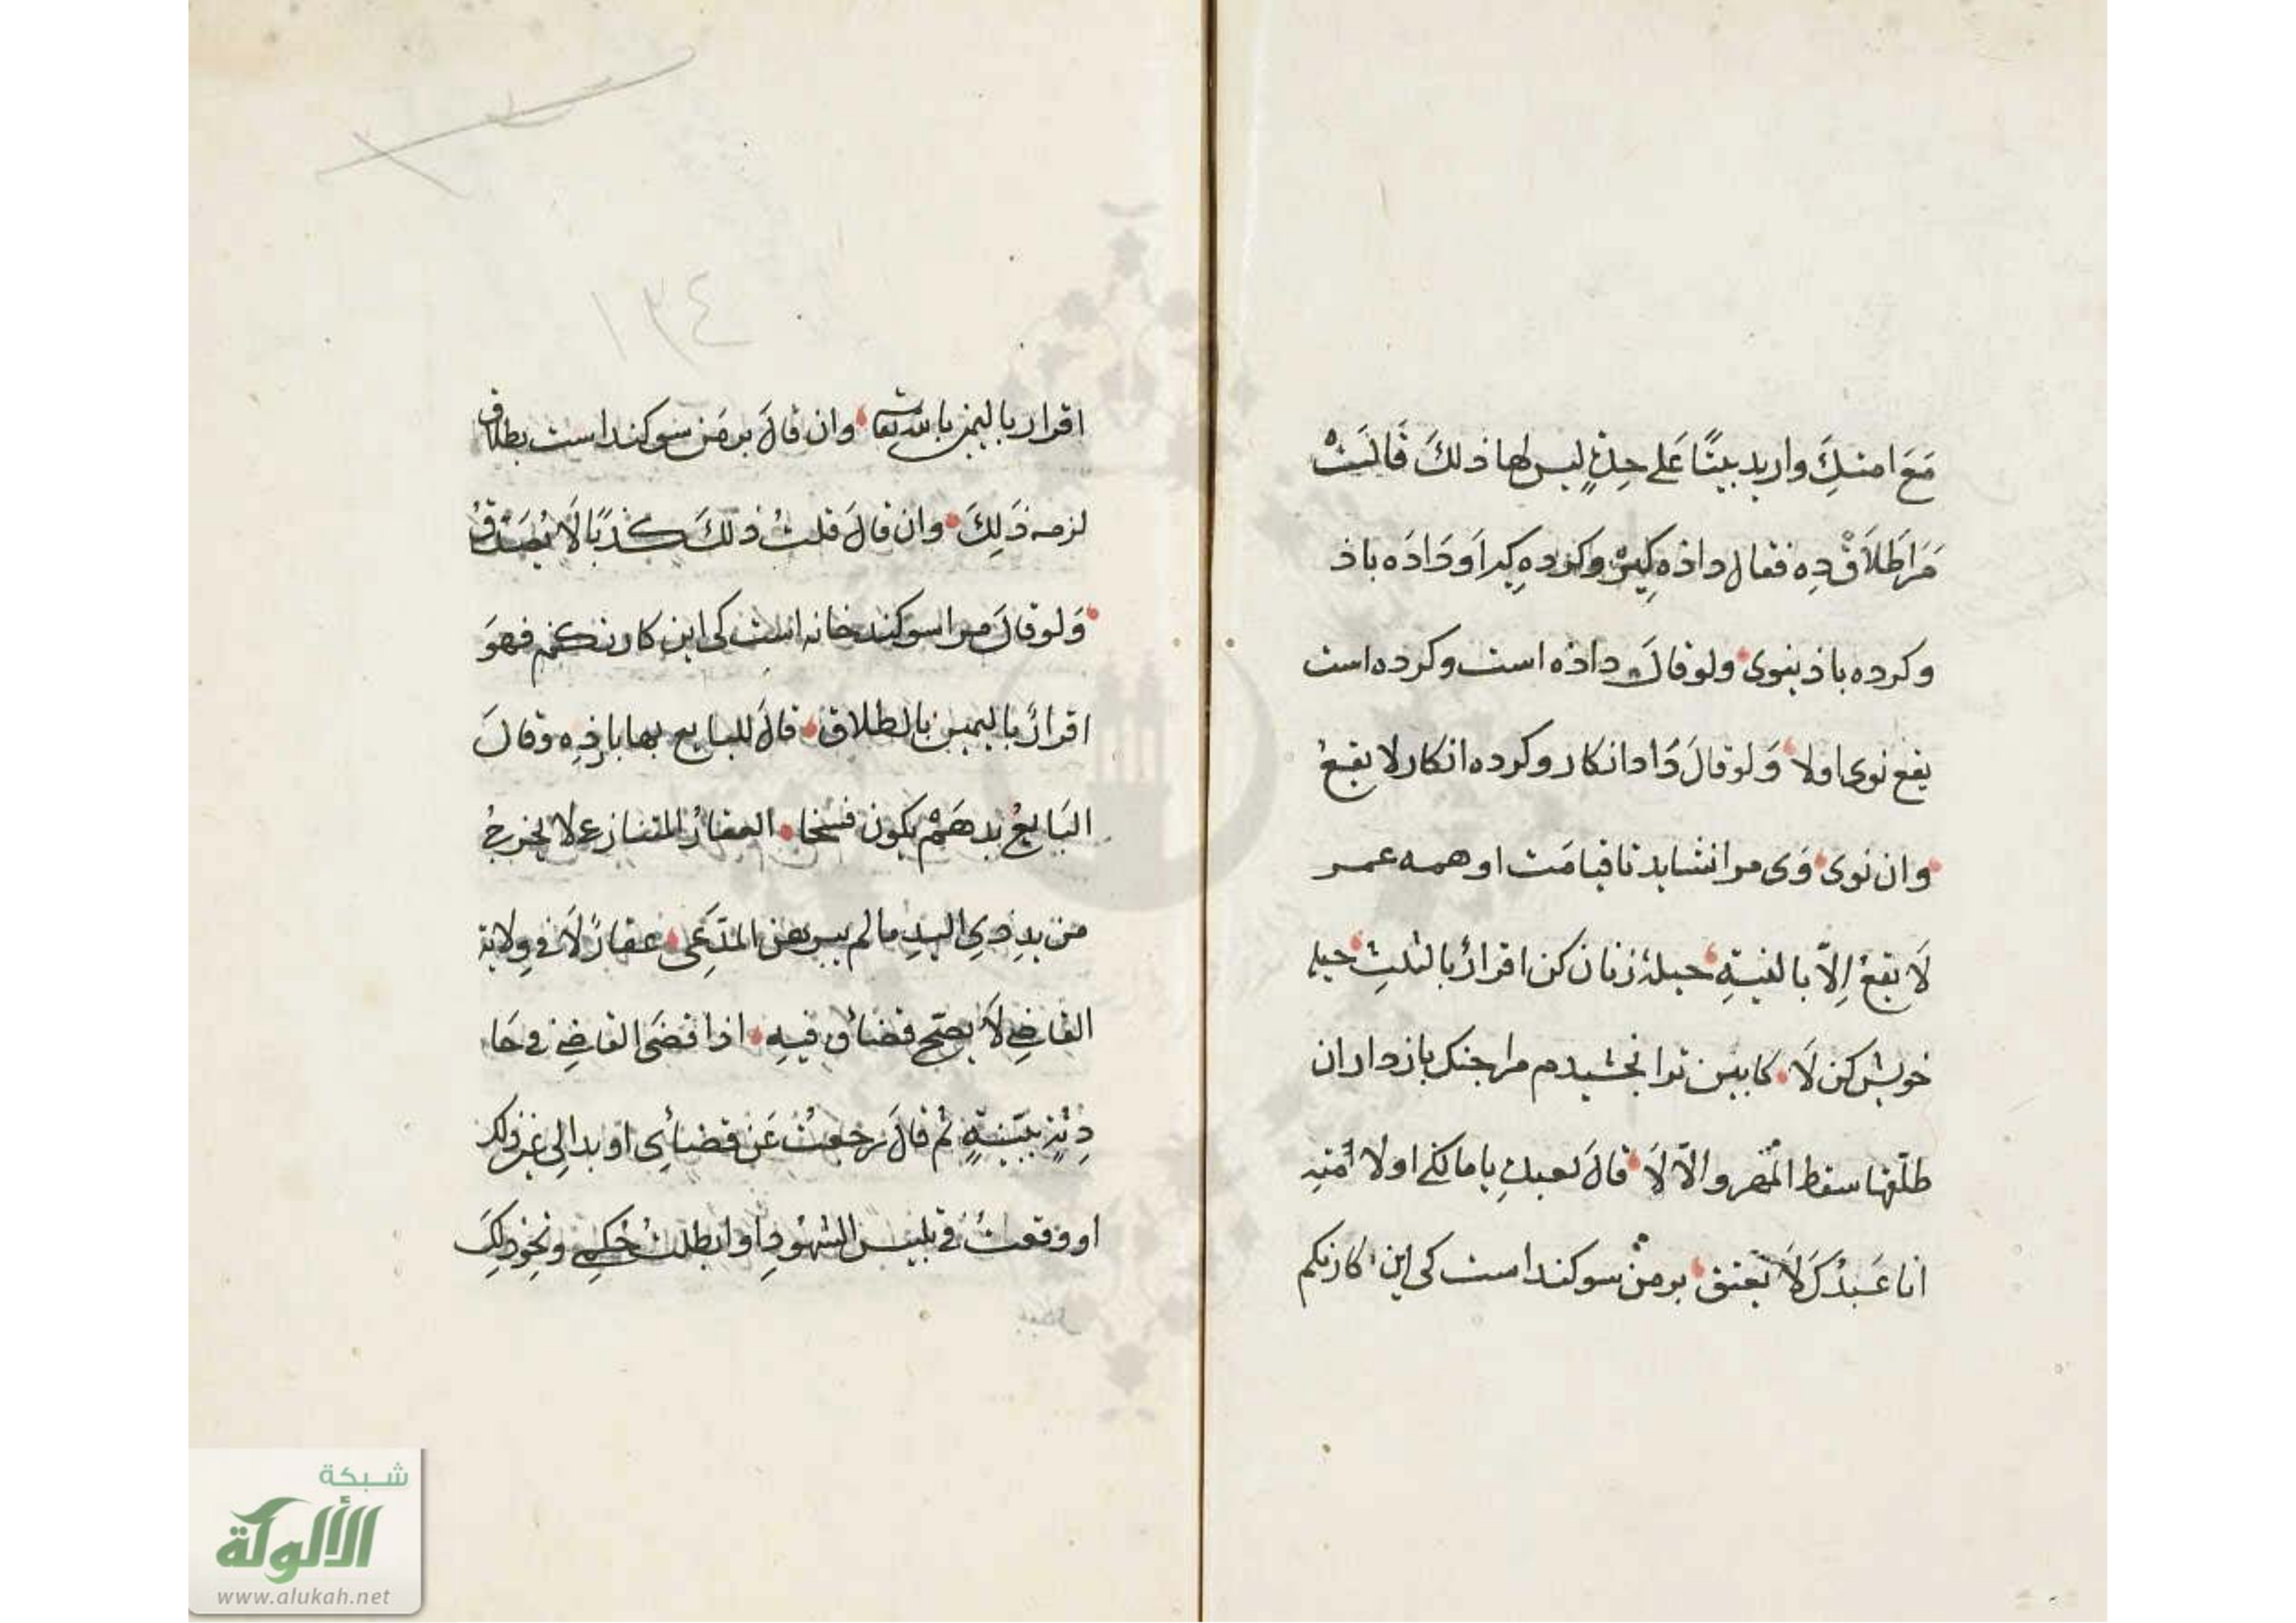 مَعَ امتِكَ واريد بيتًا عَلى حِدةٍ ليس لها ذلكَ قَالَتْ
مَرَا طَلاَقْ دِه فقال داذه كِيرْ وكرده كِيراَو دَادَه باذ
وكرده باذ ينوى ولو قالَ داذه است وكرده است
يقع نوى اولا وَلو قالَ دَاده انكار وكرده انكار لا يقعُ
وان نوى وَى مرا نشايد تا قيامَت او همه عمر
لَا يقعُ اِلّا بالنيةِ حيلهٔ زنان كن اقرارٌ بالثلثِ حيله
خويش كن لَا كابين ترا بخشيدم مرا جنك باز دار ان
طلّقها سقط المَهر والّا لَا قالَ لعبدِه يا مالكى اولا أمتِه
انا عَبدُكَ لَا يعتق بر مَنْ سوكند است كى اين كار نكنم
١٣٤
اقرار باليمين بالله تعا وان قالَ بر مَن سوكند است بطلاق
لزمه ذَلِكَ وان قالَ قلتُ ذلكَ كَذبًا لَا يُصَدقُ
وَلو قالَ مرا سوكند خانه است كى اين كار نكنم فهوَ
اقرارٌ باليمين بالطلاق قالَ للبايع بها باز ده وقالَ
البَايعُ بدهَمْ يكون فسخا العقارُ المتنازع لا يخرجُ
من يدِ ذِى اليدِ ما لم يبرهن المدّعِى عقارٌ لَا فى وِلاية
القاضِى لَا يصح قضاؤه فيهِ اذا قضَى القاضِى فى حَا
دِثةٍ ببيّنةٍ ثم قالَ رجعتُ عَن قضائِى او بدا لِى غير ذلك
او وقعتُ فى تلبيس الشهُودِ او ابطلتُ حُكمِى ونحو ذلِكَ
شبكة
الألوكة
www.alukah.net